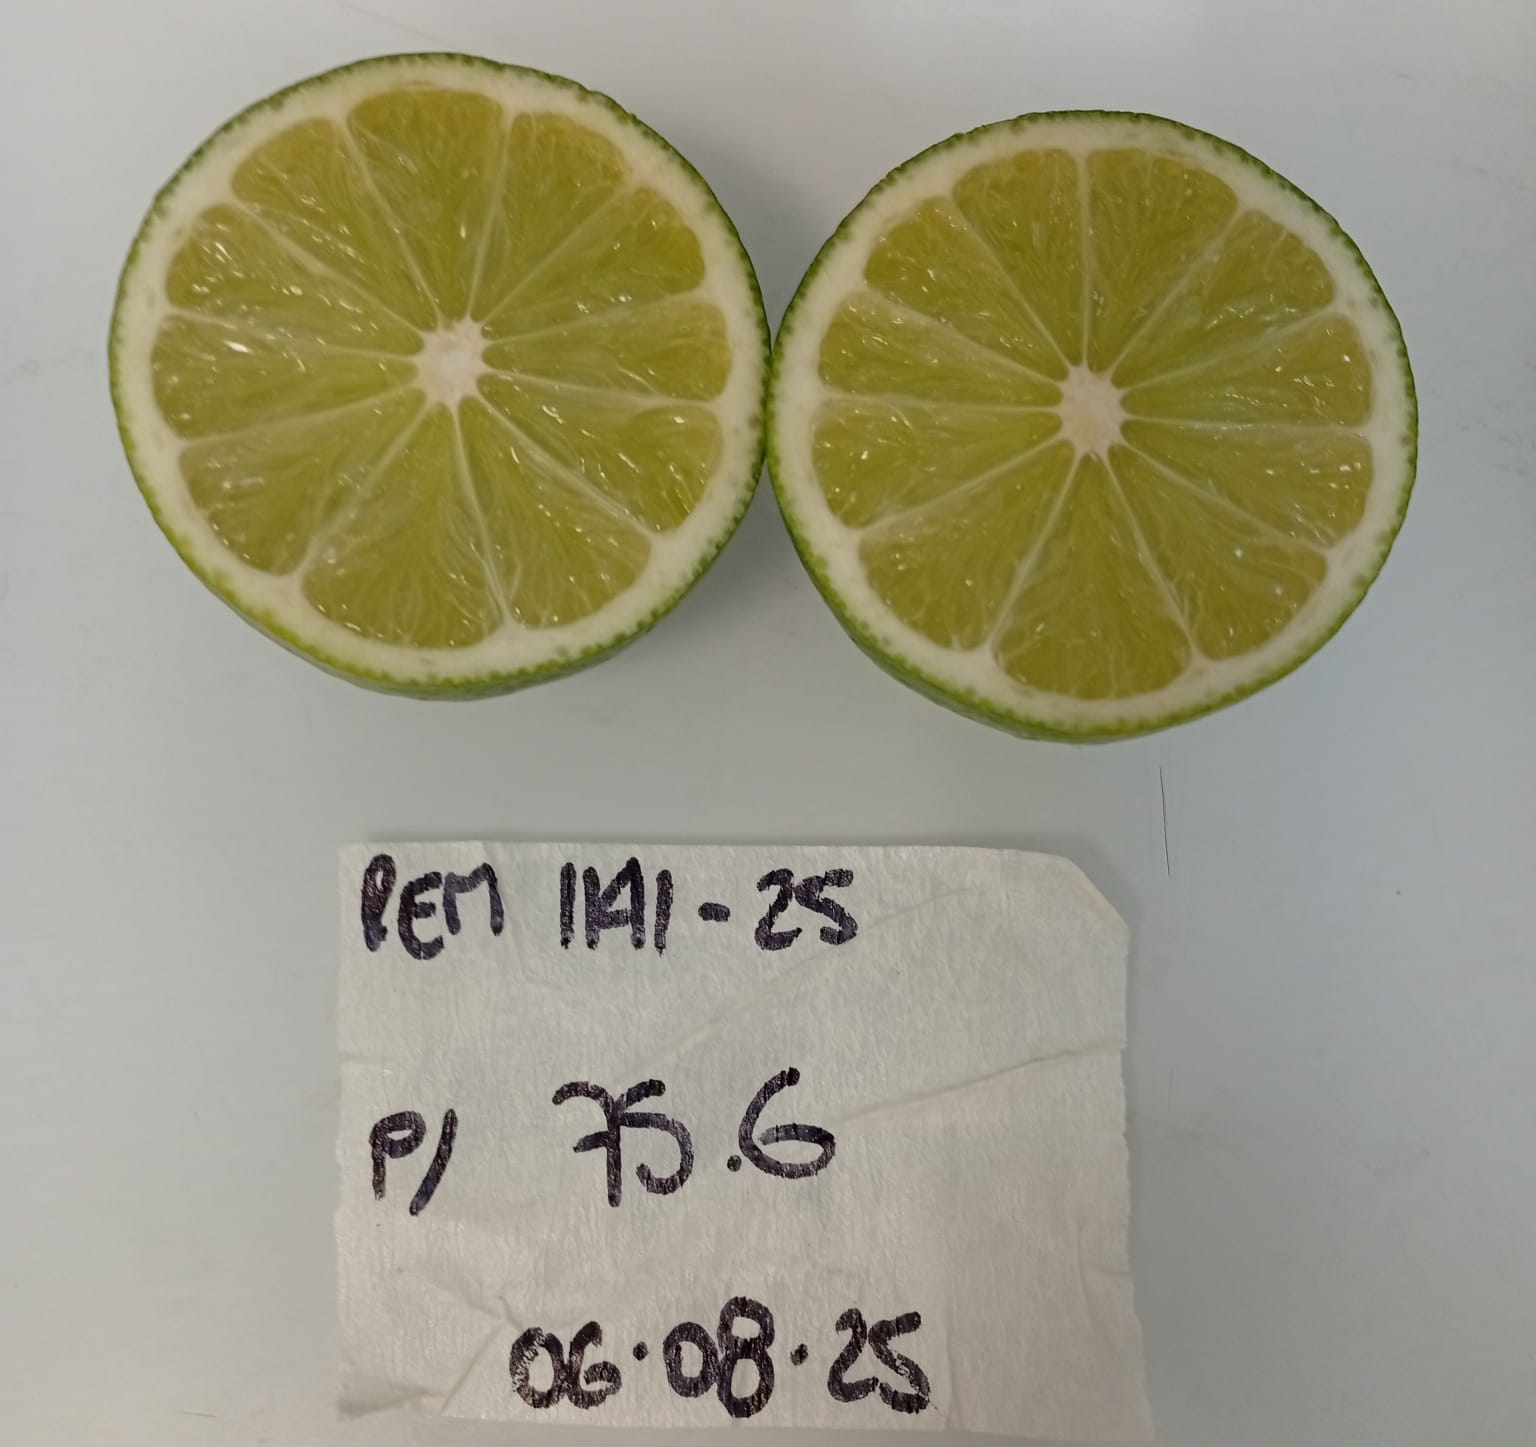 REM 1141-25
P/ 75.6
06.08.25